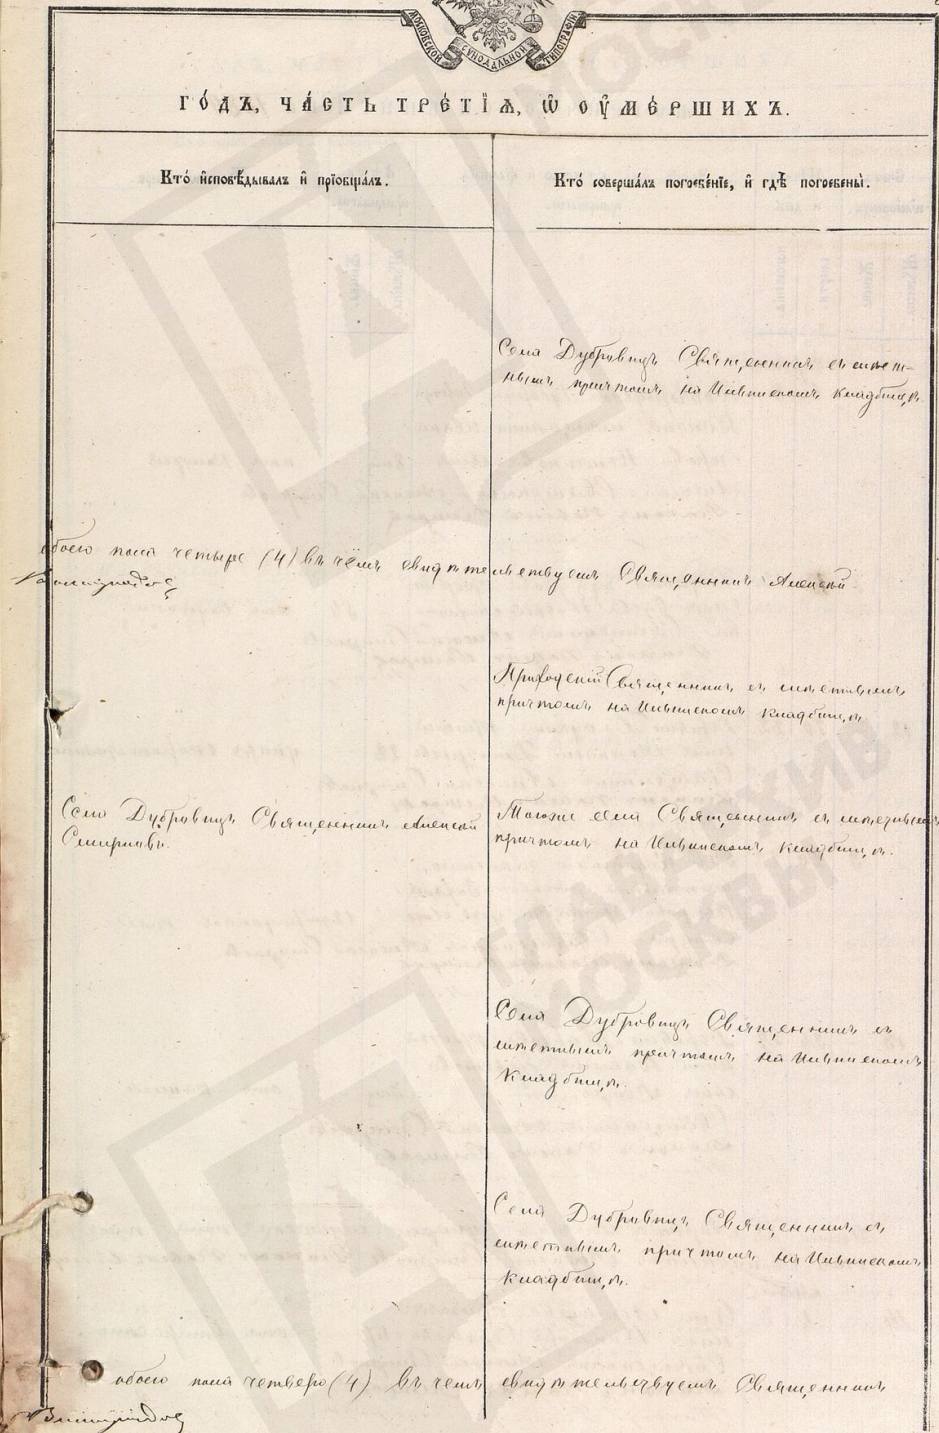 МОСКОВСКОЙ СѴНОДАЛЬНОЙ ТИПОГРАФІИ
ГО́ДЪ, ЧА́СТЬ ТРЕ́ТІѦ, Ѽ ОУ҆МЕ́РШИХЪ.
Кто̀ и҆сповѣ́дывалъ и҆ прїобща́лъ.
Кто̀ соверша́лъ погребе́нїе, и҆ гдѣ̀ погребены̀.
Села Дубровицъ Священникъ съ
нымъ причтомъ на Ильинскомъ кладбищѣ.
обоего пола четыре (4) въ чёмъ свидѣтельствуемъ Священникъ Алексѣй
Приходскій Священникъ съ
причтомъ на Ильинскомъ кладбищѣ.
Села Дубровицъ Священникъ Алексѣй
Смирновъ.
Тогоже села Священникъ съ
причтомъ на Ильинскомъ кладбищѣ.
Села Дубровицъ Священникъ съ
причтомъ на Ильинскомъ
кладбищѣ.
Села Дубровицъ Священникъ съ
причтомъ на Ильинскомъ
кладбищѣ.
обоего пола четверо (4) въ чемъ свидѣтельствуемъ Священникъ
ГЛАВАРХИВ
МОСКВЫ